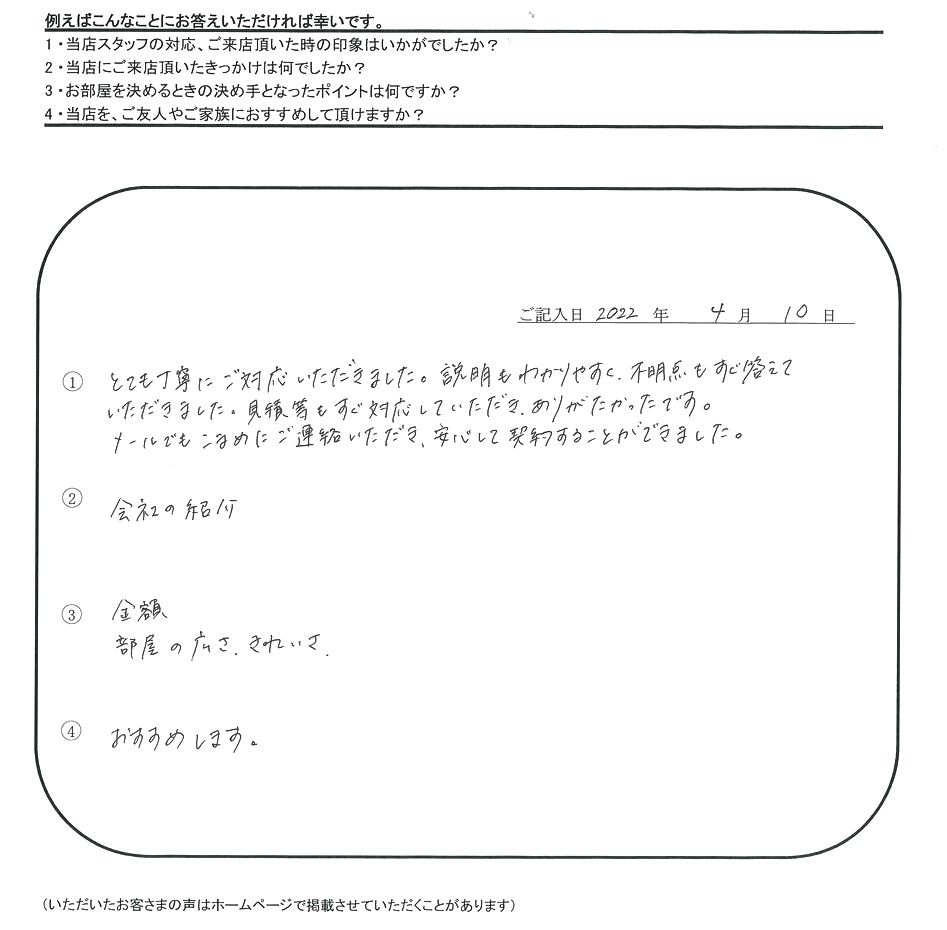 例えばこんなことにお答えいただければ幸いです。
1・当店スタッフの対応、ご来店頂いた時の印象はいかがでしたか？
2・当店にご来店頂いたきっかけは何でしたか？
3・お部屋を決めるときの決め手となったポイントは何ですか？
4・当店を、ご友人やご家族におすすめして頂けますか？
ご記入日 2022 年 4 月 10 日
① とても丁寧にご対応いただきました。説明もわかりやすく、不明点もすぐ答えて
いただきました。見積等もすぐ対応していただき、ありがたかったです。
メールでもこまめにご連絡いただき、安心して契約することができました。
② 会社の紹介
③ 金額
部屋の広さ、きれいさ、
④ おすすめします。
（いただいたお客さまの声はホームページで掲載させていただくことがあります）